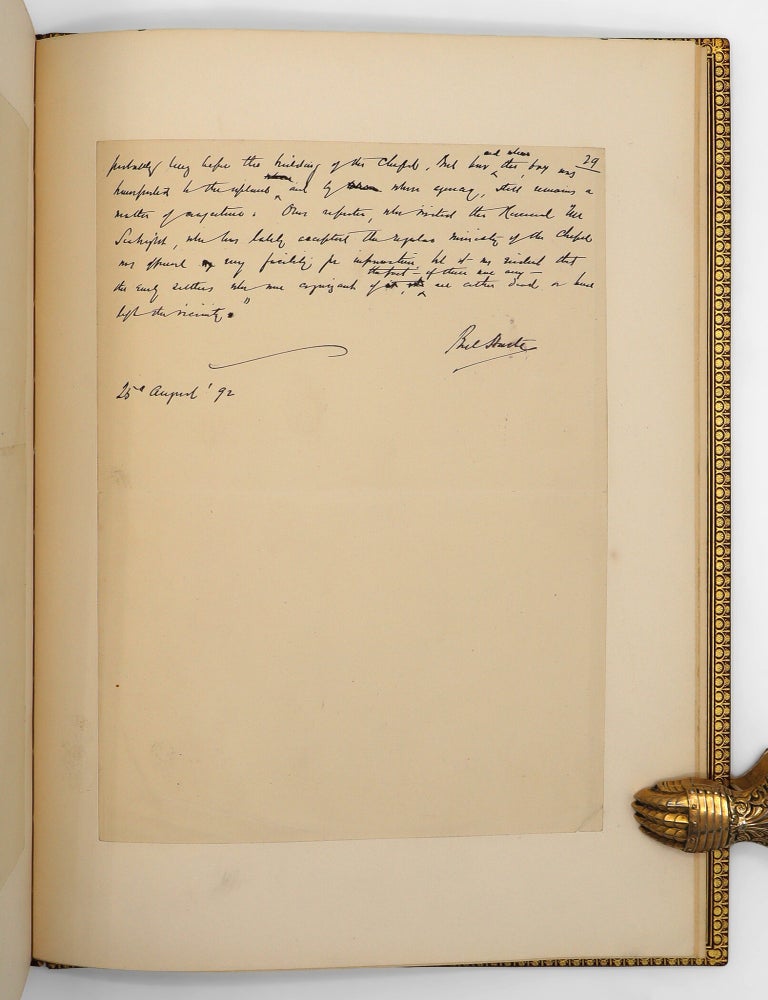 29
probably long before the building of the chapel. But how and when this box was
transported to the uplands and by whose agency, still remains a
matter of conjecture. Our reporter, who visited the Reverend Mr
Seabright, who has lately accepted the regular ministry of the chapel
was offered every facility for information, but it was evident that
the early settlers who were cognizant of the fact – if there were any – are either dead or have
left the vicinity."
Bret Harte
25th August '92